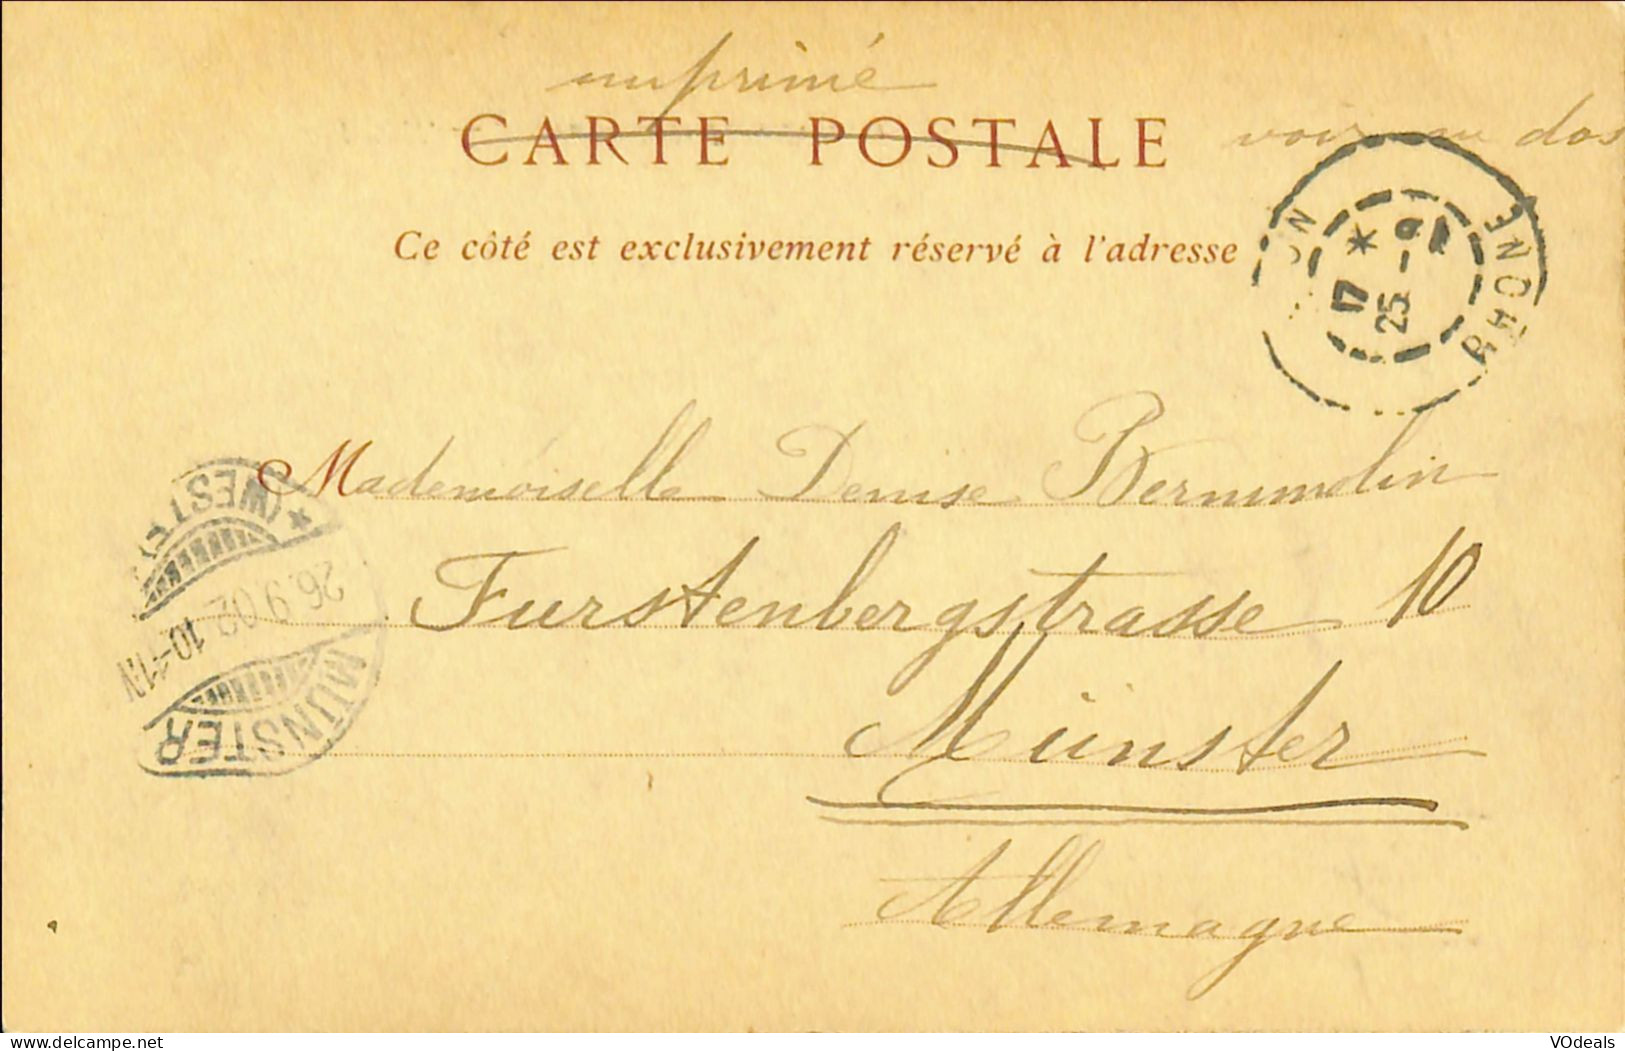 imprimé
CARTE POSTALE
voir au dos
Ce côté est exclusivement réservé à l'adresse
ON
RHONE
17 *
25 - 9
Mademoiselle Denise Bernimolin
Furstenbergstrasse 10
Münster
Allemagne
* (WESTF.)
26.9.02 10-11N
MÜNSTER
VOdeals